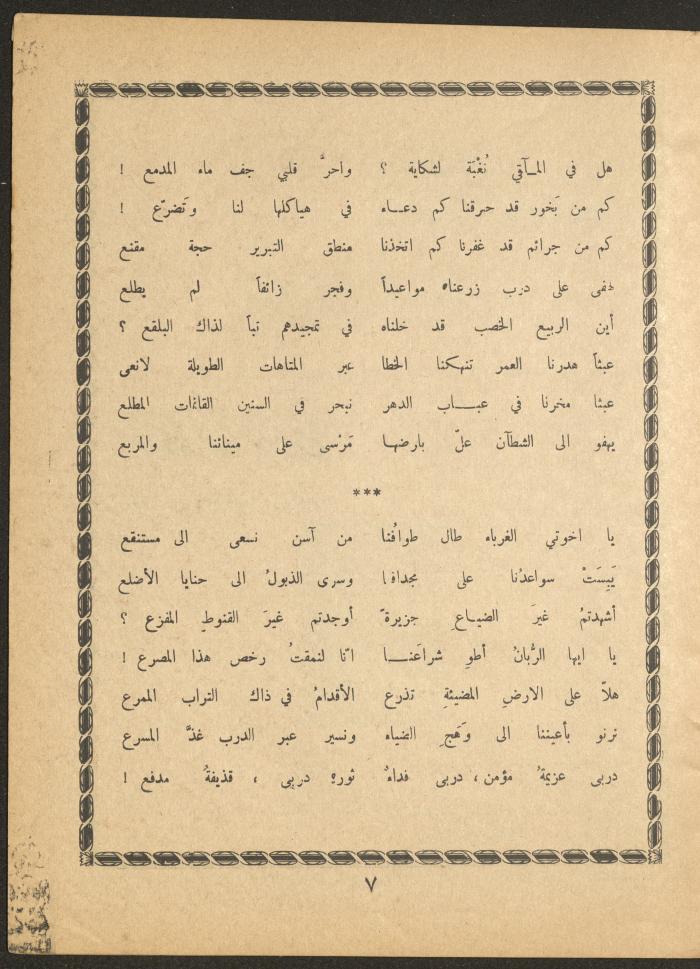 هل في المـآقي نُغْبَة لشكاية ؟ واحرَّ قلبي جف ماء المدمع !
كم من بَخور قد حرقنا كم دعـاء في هياكلها لنا وتَضرّع !
كم من جرائم قد غفرنا كم اتخذنا منطق التبرير حجة مقنع
لهفى على درب زرعناه مواعيداً وفجر زائفاً لم يطلع
أين الربيع الخصب قد خلناه في تمجيدهم تباً لذاك البلقع ؟
عبثاً هدرنا العمر تنهكنا الخطا عبر المتاهات الطويلة لانعى
عبثا مخرنا في عبـــاب الدهر نبحر في السنين القاتمات المطلع
يهفو الى الشطآن علّ بارضهـا مَرْسى على مينائنا والمربع
***
يا اخوتي الغرباء طال طوافُنا من آسن نسعى الى مستنقع
يَبِسَتْ سواعدُنا على مجدافها وسرى الذبولُ الى حنايا الأضلع
أشهدتمُ غيرَ الضيـاعِ جزيرةً أوجدتم غيرَ القنوطِ المفزع ؟
يا ايها الرُّبانُ أطوِ شراعَنـــا انّا لنمقتُ رخص هذا المصرع !
هلاّ على الارضِ المضيئةِ تذرع الأقدامُ في ذاك التراب الممرع
نرنو بأعيننا الى وَهَجِ الضياء ونسير عبر الدرب غذَّ المسرع
دربى عزيمةُ مؤمن ، دربى فداءُ ثورة دربى ، قذيفةُ مدفع !
٧